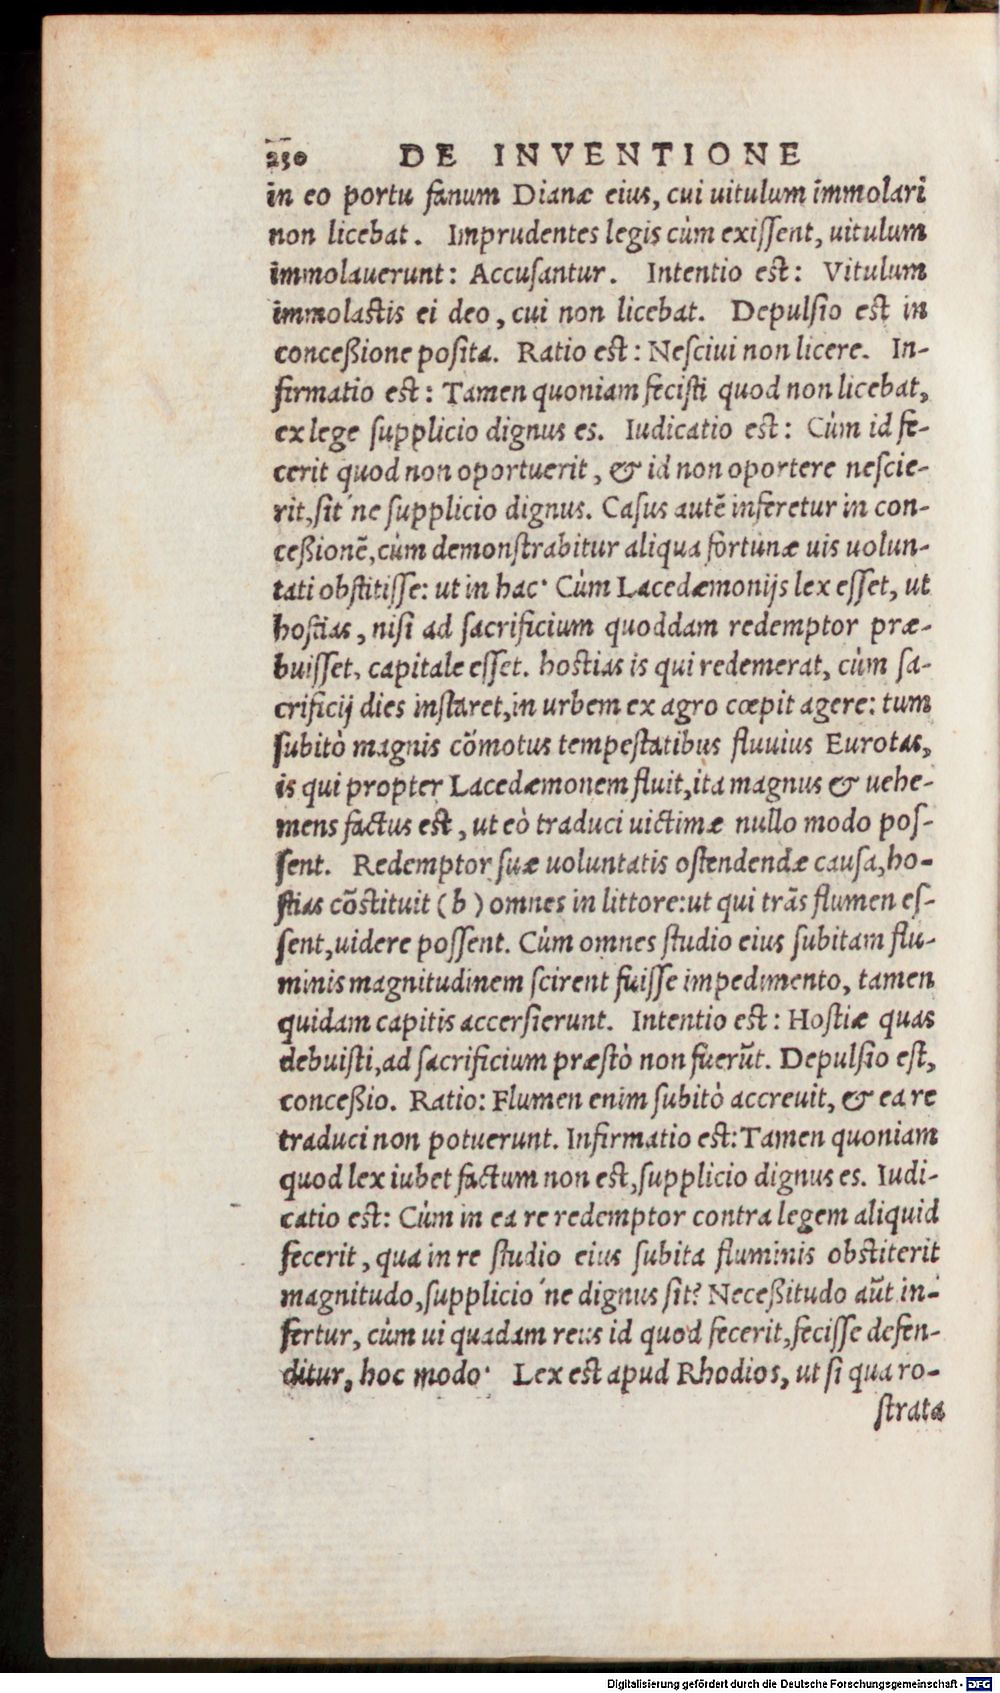 230 DE INVENTIONE
in eo portu fanum Dianæ eius, cui uitulum immolari
non licebat. Imprudentes legis cùm exissent, uitulum
immolauerunt: Accusantur. Intentio est: Vitulum
immolastis ei deo, cui non licebat. Depulsio est in
conceßione posita. Ratio est: Nesciui non licere. In-
firmatio est: Tamen quoniam fecisti quod non licebat,
ex lege supplicio dignus es. Iudicatio est: Cùm id fe-
cerit quod non oportuerit, & id non oportere nescie-
rit, sit'ne supplicio dignus. Casus autẽ inferetur in con-
ceßionẽ, cùm demonstrabitur aliqua fortunæ uis uolun-
tati obstitisse: ut in hac· Cùm Lacedæmonijs lex esset, ut
hostias, nisi ad sacrificium quoddam redemptor præ-
buisset, capitale esset. hostias is qui redemerat, cùm sa-
crificij dies instaret, in urbem ex agro cœpit agere: tum
subitò magnis cõmotus tempestatibus fluuius Eurotas,
is qui propter Lacedæmonem fluit, ita magnus & uehe-
mens factus est, ut eò traduci uictimæ nullo modo pos-
sent. Redemptor suæ uoluntatis ostendendæ causa, ho-
stias cõstituit (b) omnes in littore: ut qui trãs flumen es-
sent, uidere possent. Cùm omnes studio eius subitam flu-
minis magnitudinem scirent fuisse impedimento, tamen
quidam capitis accersierunt. Intentio est: Hostiæ quas
debuisti, ad sacrificium præstò non fuerũt. Depulsio est,
conceßio. Ratio: Flumen enim subitò accreuit, & ea re
traduci non potuerunt. Infirmatio est: Tamen quoniam
quod lex iubet factum non est, supplicio dignus es. Iudi-
catio est: Cùm in ea re redemptor contra legem aliquid
fecerit, qua in re studio eius subita fluminis obstiterit
magnitudo, supplicio'ne dignus sit? Neceßitudo aũt in-
fertur, cùm ui quadam reus id quod fecerit, fecisse defen-
ditur, hoc modo· Lex est apud Rhodios, ut si qua ro-
strata
Digitalisierung gefördert durch die Deutsche Forschungsgemeinschaft - DFG